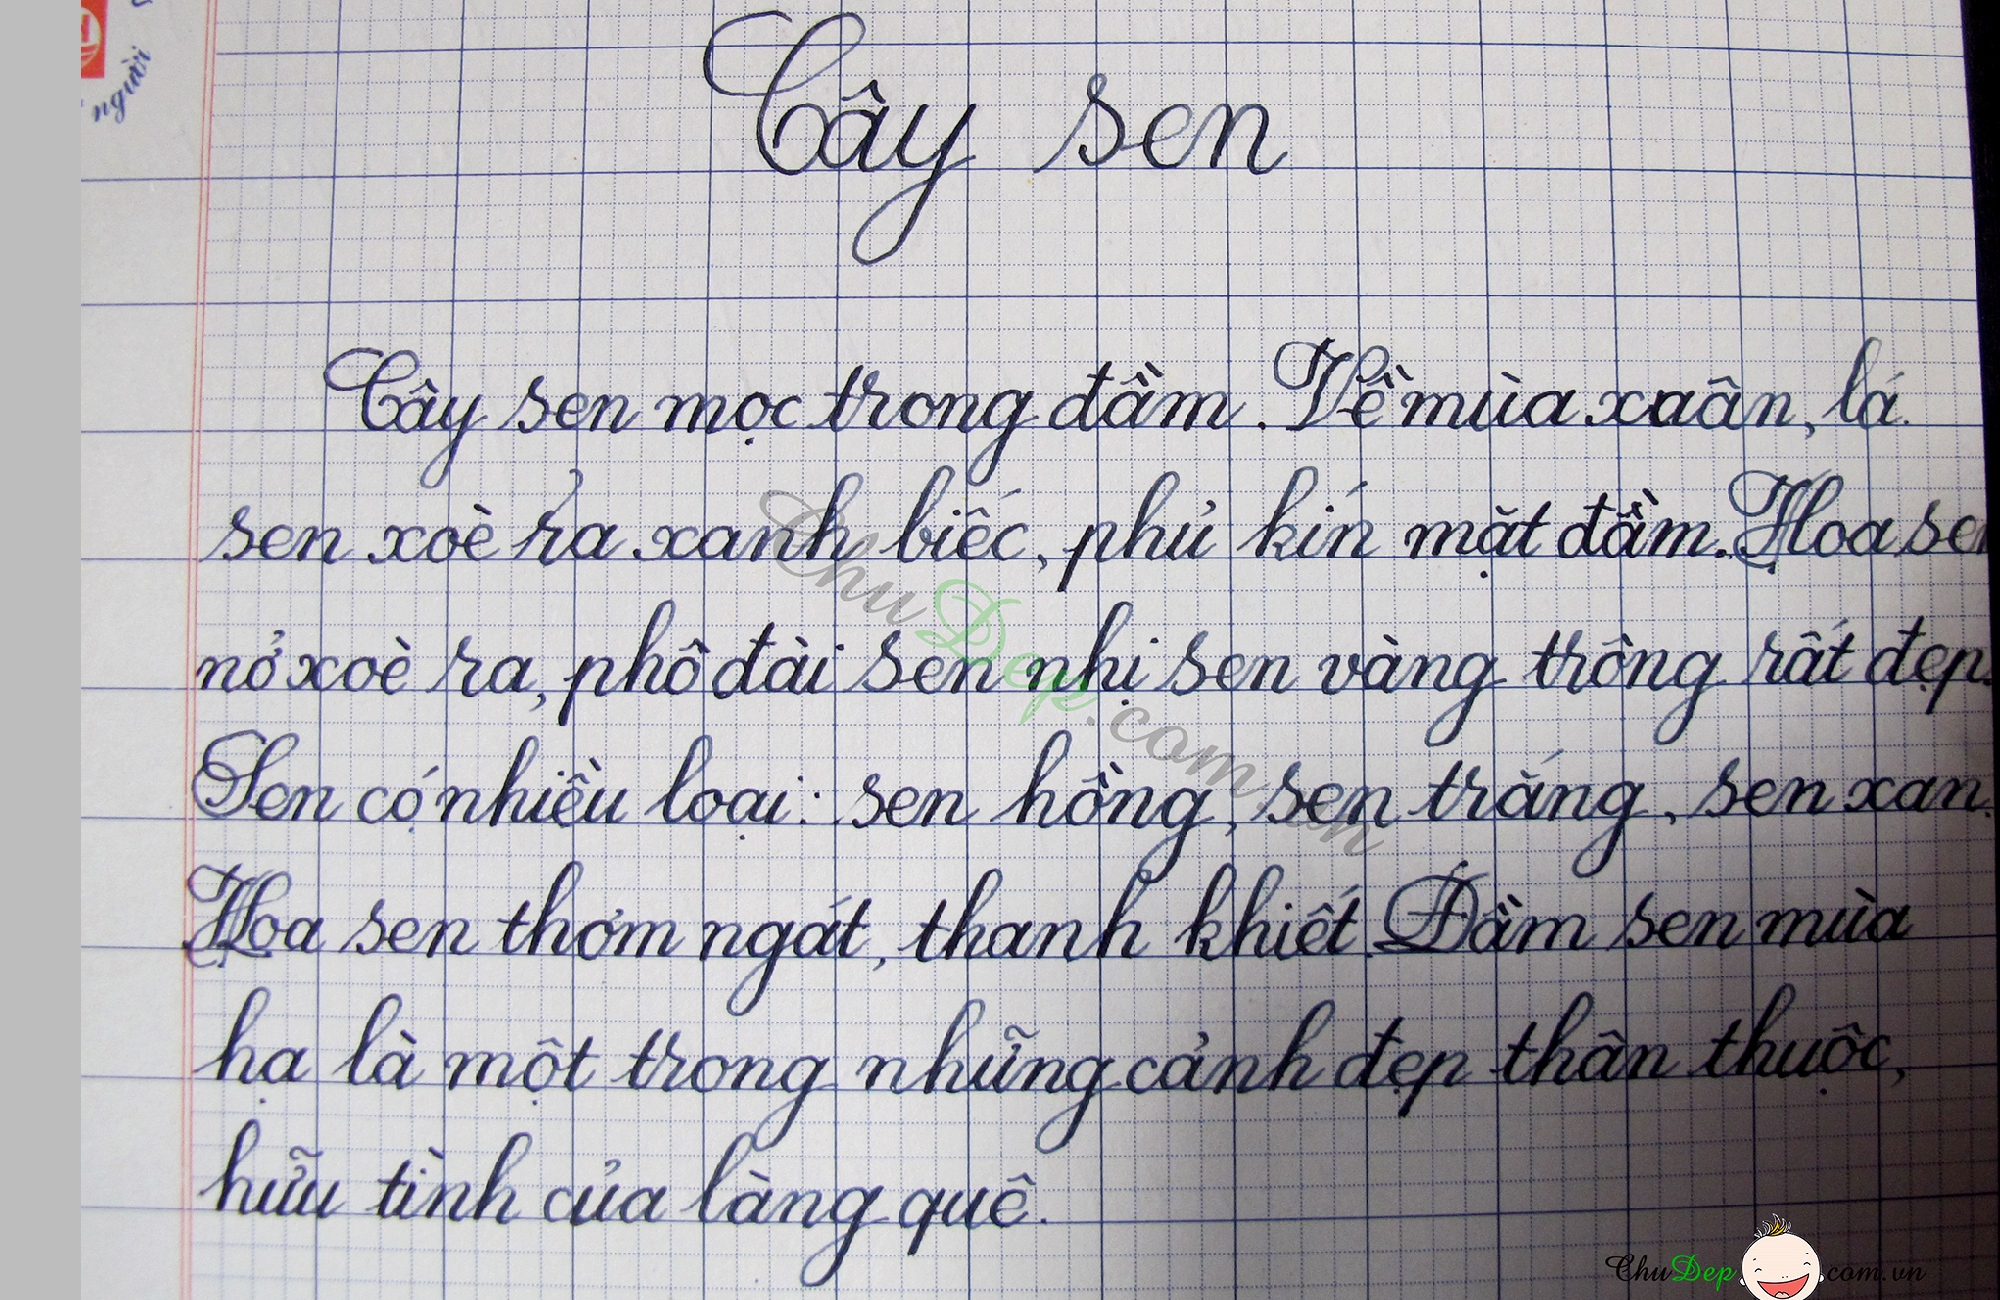 người
Cây sen
Cây sen mọc trong đầm. Về mùa xuân, lá
sen xoè ra xanh biếc, phủ kín mặt đầm. Hoa sen
nở xoè ra, phô đài sen nhị sen vàng trông rất đẹp.
Sen có nhiều loại: sen hồng, sen trắng, sen xan.
Hoa sen thơm ngát, thanh khiết. Đầm sen mùa
hạ là một trong những cảnh đẹp thân thuộc,
hữu tình của làng quê.
ChuDep.com.vn
ChuDep.com.vn